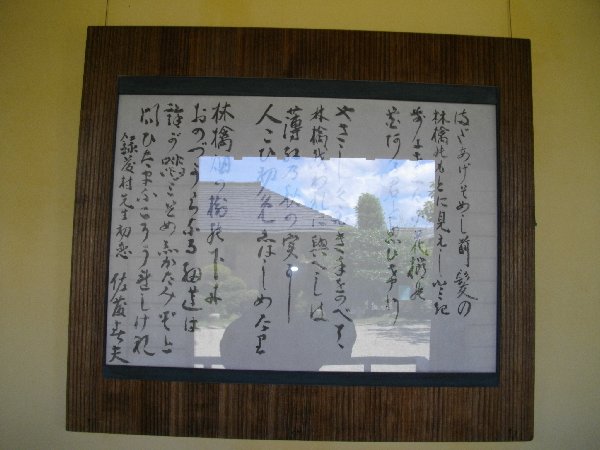 まだあげそめし前髪の
林檎のもとに見えしとき
前にさしたる花櫛の
花ある君と思ひけり
やさしく白き手をのべて
林檎をわれに與へしは
薄紅の秋の実に
人こひ初めしはじめなり
林檎畑の樹の下に
おのづからなる細道は
誰が踏みそめしかたみぞと
問ひたまふこそうれしけれ
録藤村先生初恋 佐藤春夫